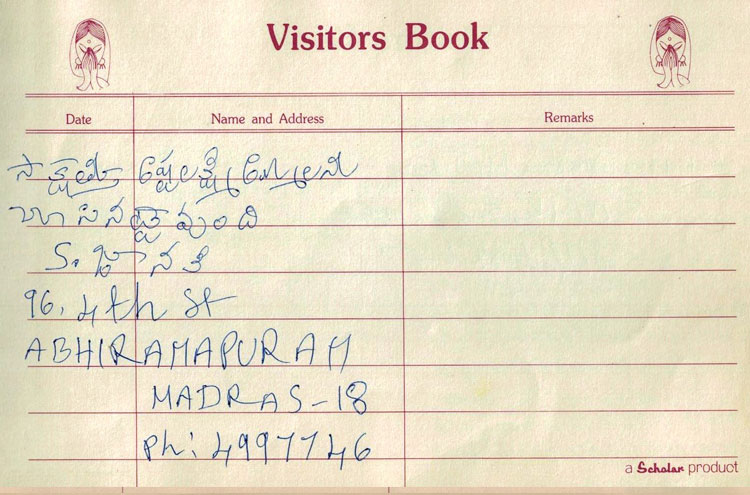 Visitors Book
Date Name and Address Remarks
S. జానకి
96, 4th St
ABHIRAMAPURAM
MADRAS-18
Ph: 4997746
a Scholar product